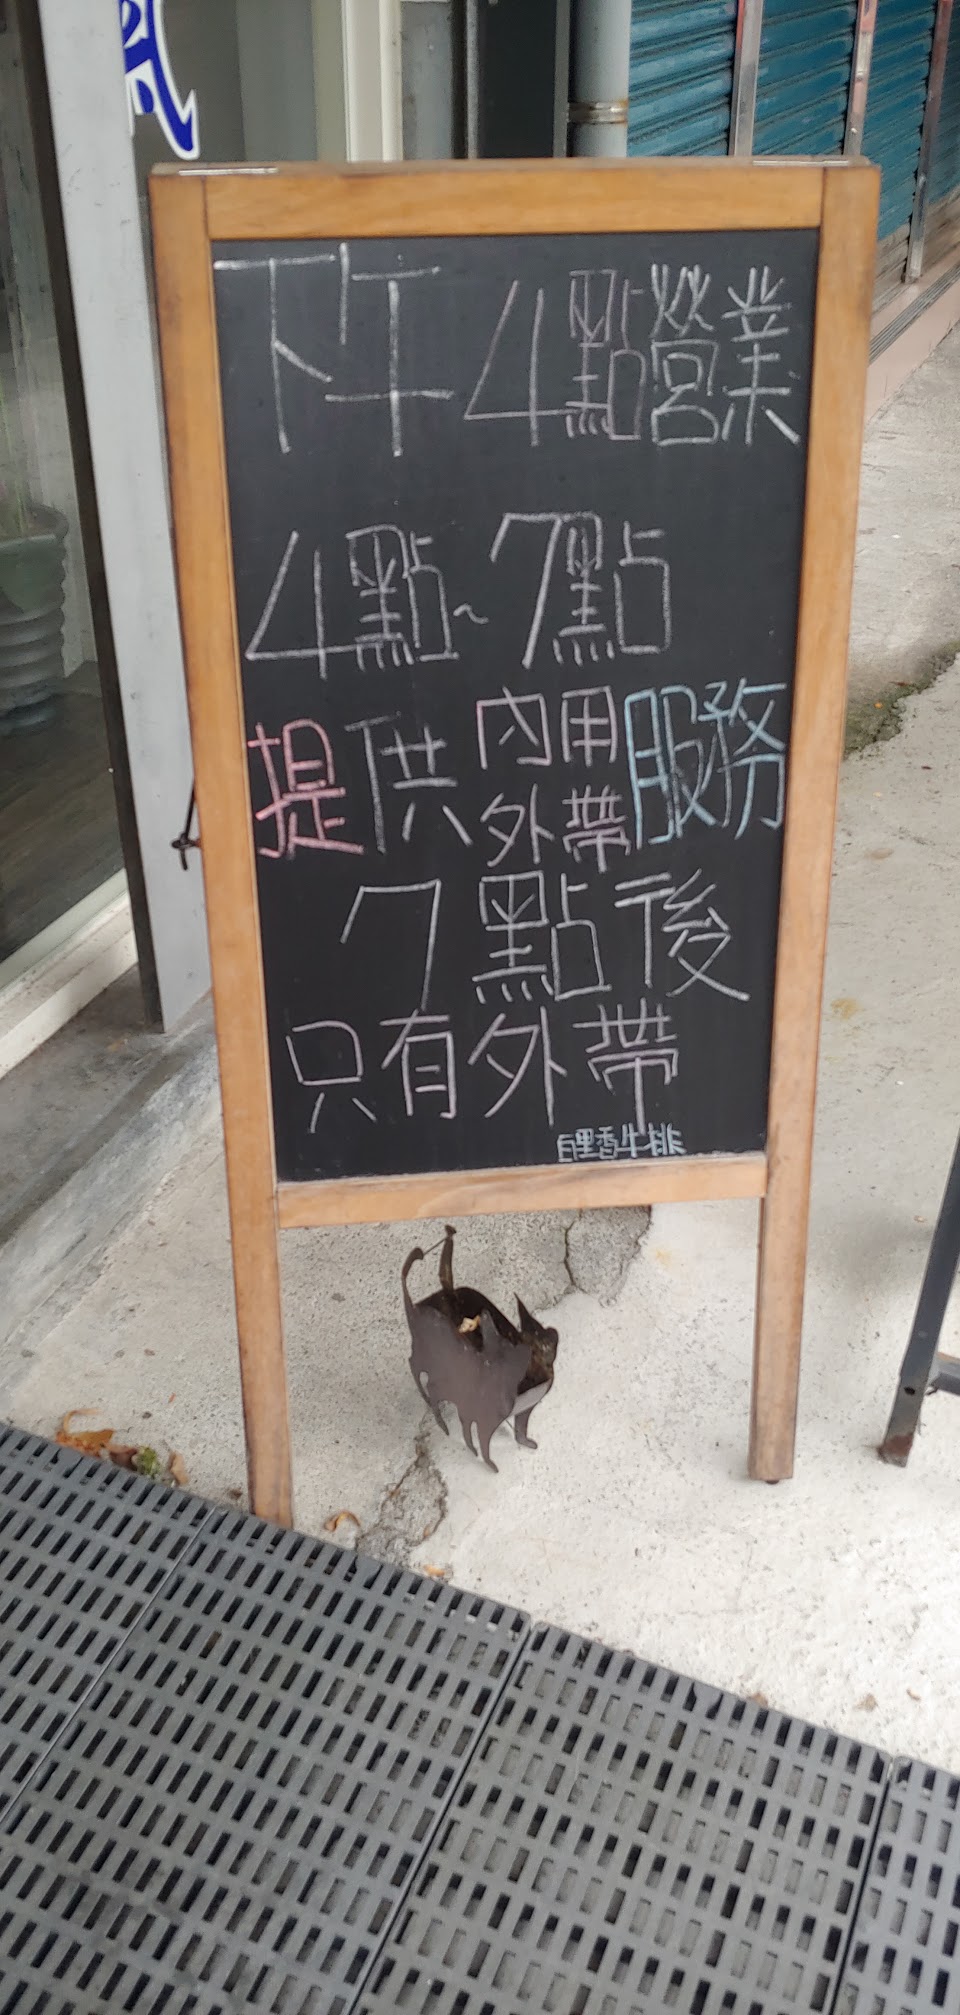 下午4點營業
4點~7點
提供內用外帶服務
7點後
只有外帶
百里香牛排